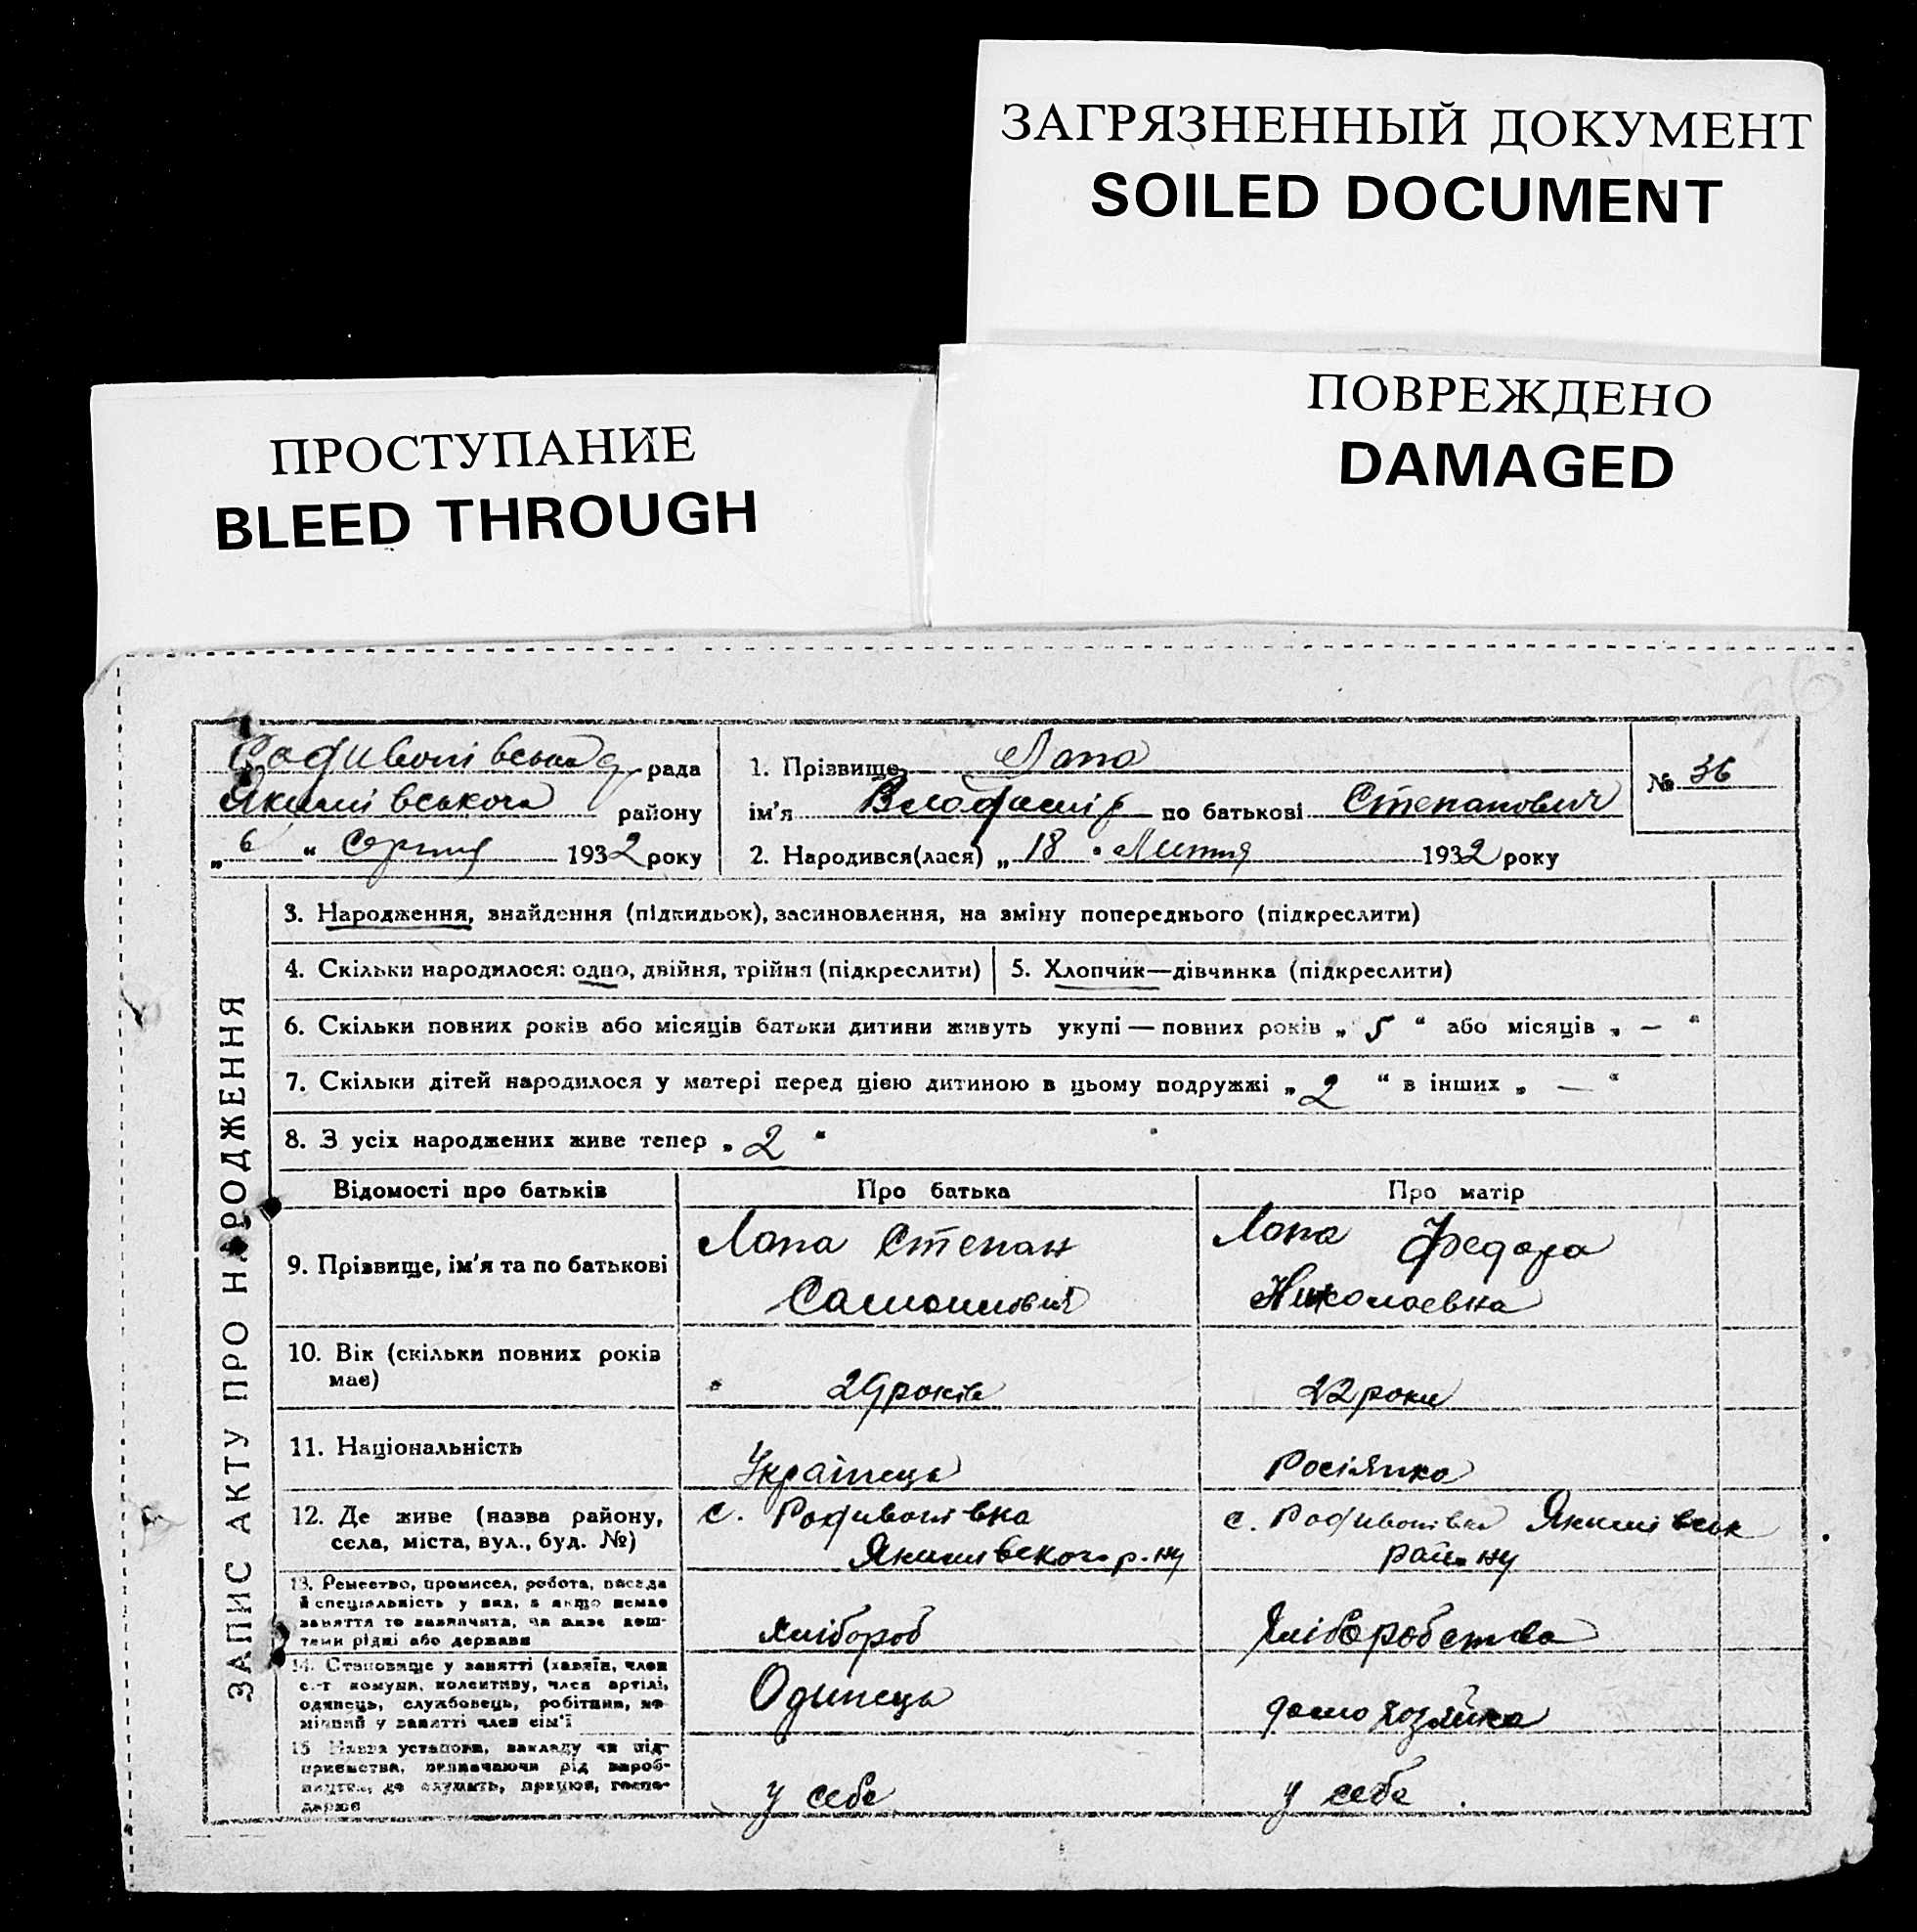 ЗАГРЯЗНЕННЫЙ ДОКУМЕНТ
SOILED DOCUMENT
ПОВРЕЖДЕНО
DAMAGED
ПРОСТУПАНИЕ
BLEED THROUGH
Родивонівська рада
Якимівського району
„ 6 “ Серпня 1932 року
1. Прізвище Лапа
ім'я Владимір по батькові Степанович
№ 36
2. Народився(лася) „ 18 “ Липня 1932 року
ЗАПИС АКТУ ПРО НАРОДЖЕННЯ
3. Народження, знайдення (підкидьок), засиновлення, на зміну попереднього (підкреслити)
4. Скільки народилося: одно, двійня, трійня (підкреслити)
5. Хлопчик—дівчинка (підкреслити)
6. Скільки повних років або місяців батьки дитини живуть укупі — повних років „ 5 “ або місяців „ — “
7. Скільки дітей народилося у матері перед цією дитиною в цьому подружжі „ 2 “ в інших „ — “
8. З усіх народжених живе тепер „ 2 “
Відомості про батьків Про батька Про матір
9. Прізвище, ім'я та по батькові
Лапа Степан
Лапа Федора
Николаевна
10. Вік (скільки повних років
має)
29 років
22 роки
11. Національність
Українець
Росіянка
12. Де живе (назва району,
села, міста, вул., буд. №)
с. Родивонівка
Якимівского р-ну
с. Родивонівка Якимівськ
райо ну
13. Ремество, промисел, робота, посада
й спеціяльність у них, а якщо немає
заняття то зазначити, чи живе кош-
тами рідні або держави
хлібороб
Хліборобства
14. Становище у занятті (хазяїн, член
с.-г комуни, колективу, член артілі,
одинець, службовець, робітник, по-
мічний у занятті член сім'ї
Одинець
домохозяйка
15 Назва установи, закладу чи під-
приємства, визначаючи рід вироб-
ництва, де служить, працює, госпо-
дарює
у себе
у себе